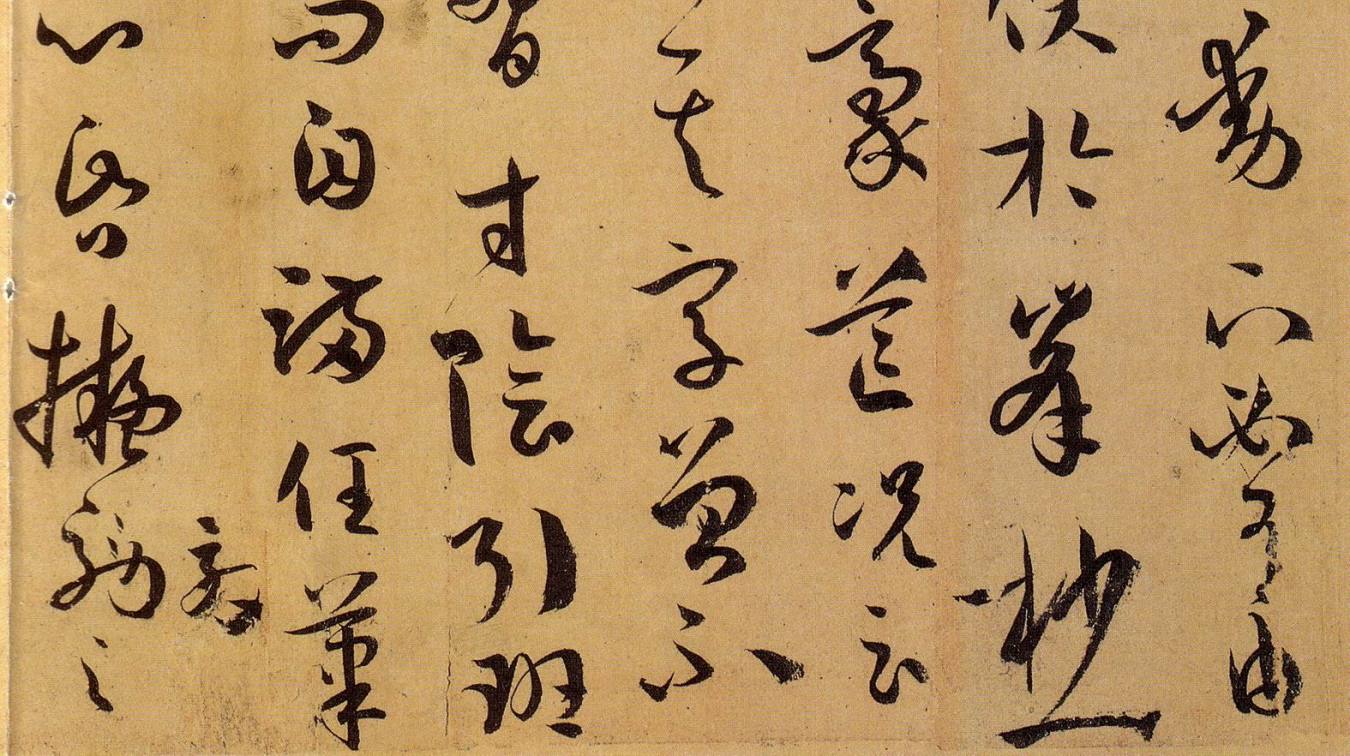 動下必有由
伏於峯杪一
豪芒況云
其字曾不
習寸陰引班
而自滿任筆
心昏擬効之